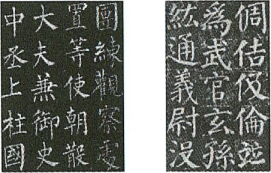 團練觀察處
置等使朝散
大夫兼御史
中丞上柱國
倜佶伋倫並
為武官玄孫
紘通義尉没